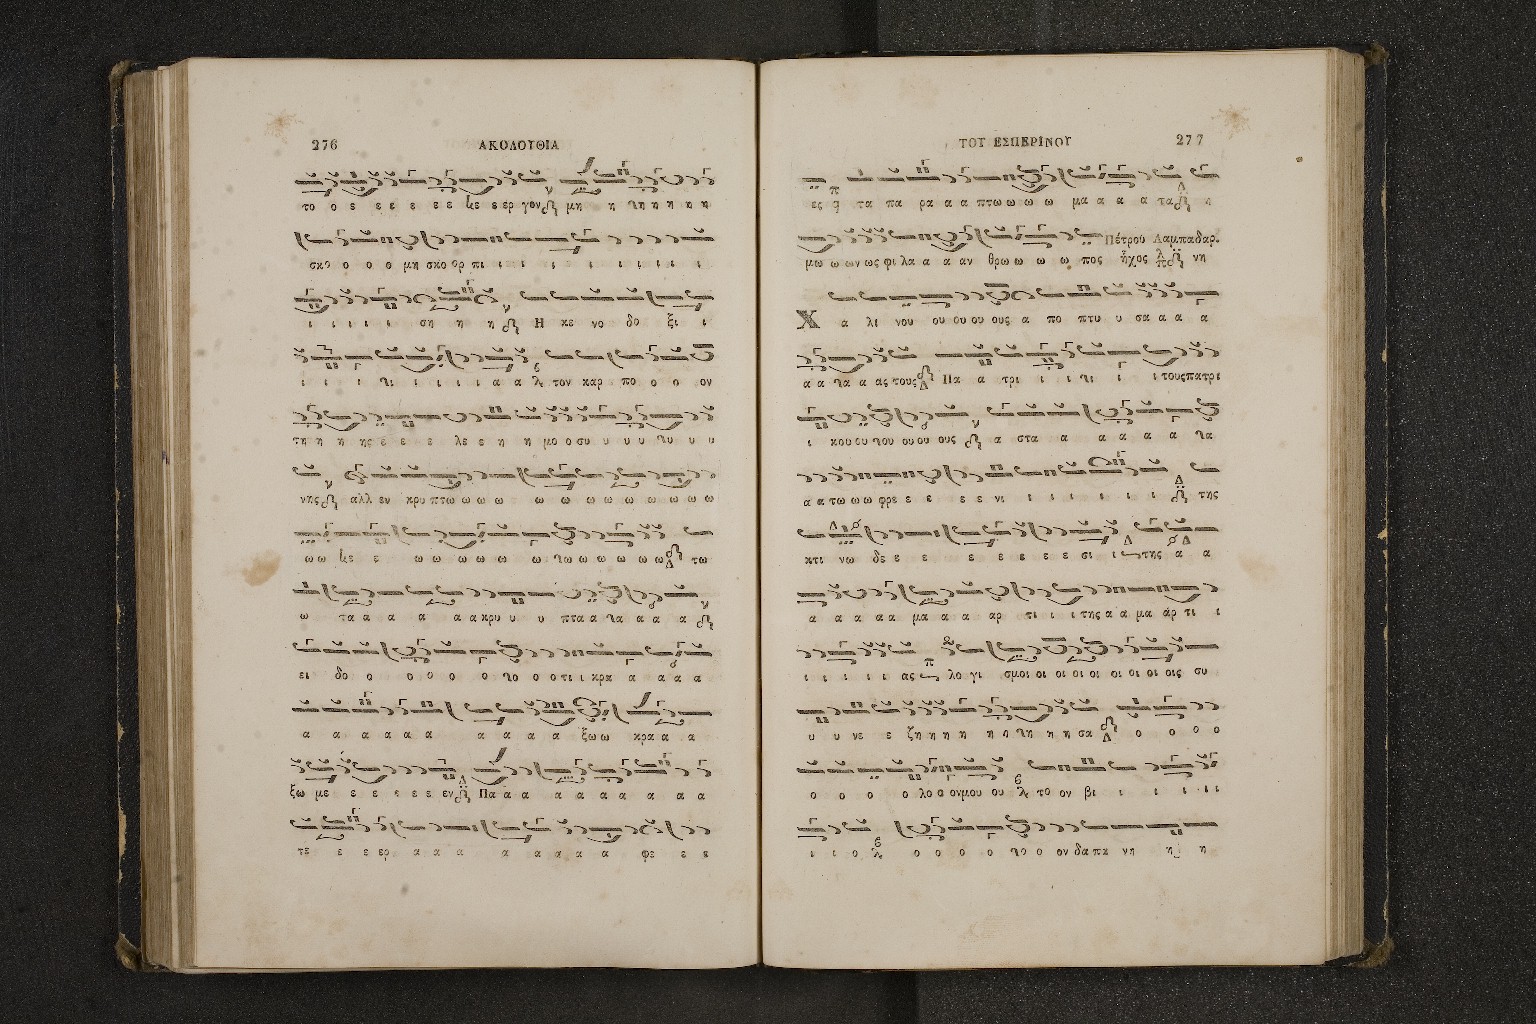 276 ΑΚΟΛΟΥΘΙΑ
το ο ε ε ε ε ε ε κε ε ερ γον μη η η η η η η
σκο ο ο ο μη σκο ορ πι ι ι ι ι ι ι ι ι ι
ι ι ι ι ι ση η η Η κε νο δο ξι ι
ι ι ι ι ι ι ι ι α α τον καρ πο ο ο ον
τη η η ης ε ε ε λε ε η η μο ο συ υ υ υ υ υ υ
νης αλλ εν κρυ πτω ω ω ω ω ω ω ω ω ω ω ω ω
ω ω κε ε ω ω ω ω ω ω ω ω ω ω ω ω τω
ω τα α α α α α κρυ υ υ πτα α α α α α
ει δο ο ο ο ο ο ο ο ο ο τι ι κρα α α α α
α α α α α α α α α α ξω ω κρα α α
ξω με ε ε ε ε ε εν Πα α α α α α α α α α
τε ε ε ερ α α α α α α α α φε ε ε
ΤΟΥ ΕΣΠΕΡΙΝΟΥ 277
ες τα πα ρα α α πτω ω ω ω μα α α α τα η
μω ω ων ως φι λα α α αν θρω ω ω ω πος Πέτρου Λαμπαδαρ. ἦχος νη
Χ α λι νου ου ου ου ους α πο πτυ υ σα α α α
α α α α ας τους Πα α τρι ι ι ι ι ι τους πατρι
ι κου ου ου ου ου ους α στα α α α α α α
α α τω ω ω φρε ε ε ε ε νι ι ι ι ι ι ι της
κτι νω δε ε ε ε ε ε ε ε ε σι ι της α α
α α α α α μα α α αρ τι ι ι της α α μα άρ τι ι
ι ι ι ι ι ας λο γι σμοι οι οι οι οι οι οι οι οις συ
υ υ νε ε ζη η η η η η η η η σα ο ο ο ο
ο ο ο ο λο ο ονμου ου το ον βι ι ι ι ι ι
ι ι ο ο ο ο ο ο ο ον δα πα νη η η